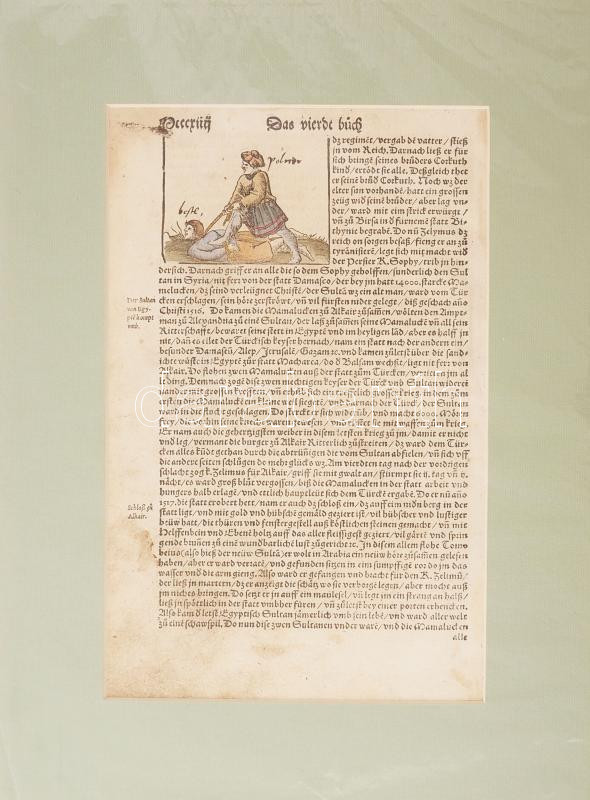 Das vierde bůch
dz regimẽt / vergab dẽ vatter / stieß
jn vom Reich. Darnach ließ er für
sich bringẽ seines brůders Corkuth
kind / ertödt sie alle. Deßgleich thet
er seinẽ brůd Corkuth. Noch wz der
elter sun vorhandẽ / hatt ein grossen
zeüg wid seinẽ brůder / aber lag vn-
der / ward mit eim strick erwürgt /
vñ zů Birsa in d fürnemẽ statt Bi-
thynie begrabẽ. Do nů Zelymus dz
reich on sorgen besaß / fieng er an zů
tyrãnisierẽ / legt sich mit macht wid
der Persier K. Sophy / trib jn hin-
dersich. Darnach griff er an alle die so dem Sophy geholffen / sunderlich den Sul
tan in Syria / nit ferr von der statt Damasco / der bey jm hatt 14000. starcke Ma-
melucken / dz seind verleügnet Christẽ / der Sultã wz ein alt man / ward vom Tür
cken erschlagen / sein höre zerströwt / vñ vil fürsten nider gelegt / diß geschach año
Der Sultan
von Egy-
Christi 1516. Do kamen die Mamalucken zů Alkair zůsam̃en / wölten den Ampt-
man zů Alexandria zů einẽ Sultan / der laß zůsam̃en seine Mamalucẽ vñ all sein
Ritterschafft / bewaret seine stett in Egyptẽ vnd im heyligen läd / aber es halff jn
nit / dañ es eilet der Türckisch keyser hernach / nam ein statt nach der andern ein /
besunder Damascũ / Alep / Jerusalẽ / Gazam ꝛc. vnd kamen zůletst über die sand-
ichte wüste in Egyptẽ zůr statt Macharea / do d Balsam wechßt / ligt nit ferr von
Alkair. Do flohen zwen Mamalucẽ auß der statt zům Türcken / verrieten jm al
le ding. Demnach zogẽ dise zwen mechtigen keyser der Türck vnd Sultan wider ei
nander mit grossen krefften / vñ erhůb sich ein treffelich grosser krieg / in dem zům
ersten die Mamalucẽ ein kleine weil sigetẽ / vnd darnach der Türck / der Sultan
ward in die flucht geschlagen. Do sterckt er sich widerũb / vnd macht 6000. Möhen
frey / die vorhin seine knecht waren gewesen / vnd rüstet sie mit waffen zům krieg.
Er nam auch die gehertzigsten weiber in disem letsten krieg zů jm / damit er nicht
vnd leg / vermant die burger zů Alkair Ritterlich zůstreiten / dz ward dem Tür-
cken alles kůdt gethan durch die abtrünigen die vom Sultan abfielen / vñ sich vff
die andere seiten schlůgen do mehr glücks wz. Am vierdten tag nach der vordrigen
schlacht zog K. Zelimus für Alkair / griff sie mit gwalt an / stürmpt sie ij. tag vñ ij.
nächt / es ward groß blůt vergossen / biß die Mamalucken in der statt arbeit vnd
hungers halb erlagẽ / vnd ettlich hauptleüt sich dem Türckẽ ergabẽ. Do er nů año
Schloß zů
Alkair.
1517. die statt erobert hett / nam er auch dz schloß ein / dz auff eim möberg in der
statt ligt / vnd mit gold vnd hübschẽ gemäld geziert ist / vil hübscher vnd lustiger
beüw hatt / die thüren vnd fenstergestell auß köstlichen steinen gemacht / vñ mit
Helffenbein vnd Ebenẽ holtz auff das aller fleissigest geziert / vil gärtẽ vnd sprin
gende brůnẽ zů einẽ wundbarlichẽ lust zůgericht ꝛc. In disem allem flohe Tomo
beius (also hieß der neüw Sultã) er wolt in Arabia ein neüw höre zůsam̃en gelesen
haben / aber er ward verratẽ / vnd gefunden sitzen in eim sumpffige ror do jm das
wasser vnd die arm gieng. Also ward er gefangen vnd bracht für den K. Zelimũ /
der ließ jn martern / dz er anzeigt die schätz wo sie verborgẽ legen / aber mocht auß
jm nichts bringen. Do setzt er jn auff ein maulesel / vñ legt jm ein strang an halß /
ließ jn spöttlich in der statt vmbher füren / vñ zůletst bey einer porten erhencken.
Also kam d letst Egyptisch Sultan jämerlich vmb sein lebẽ / vnd ward aller welt
zů einẽ schawspil. Do nun dise zwen Sultanen vnder warẽ / vnd die Mamalucken
alle